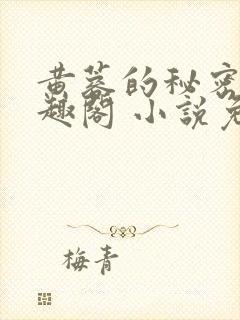 黄蓉的秘密
趣阁 小说免
梅青